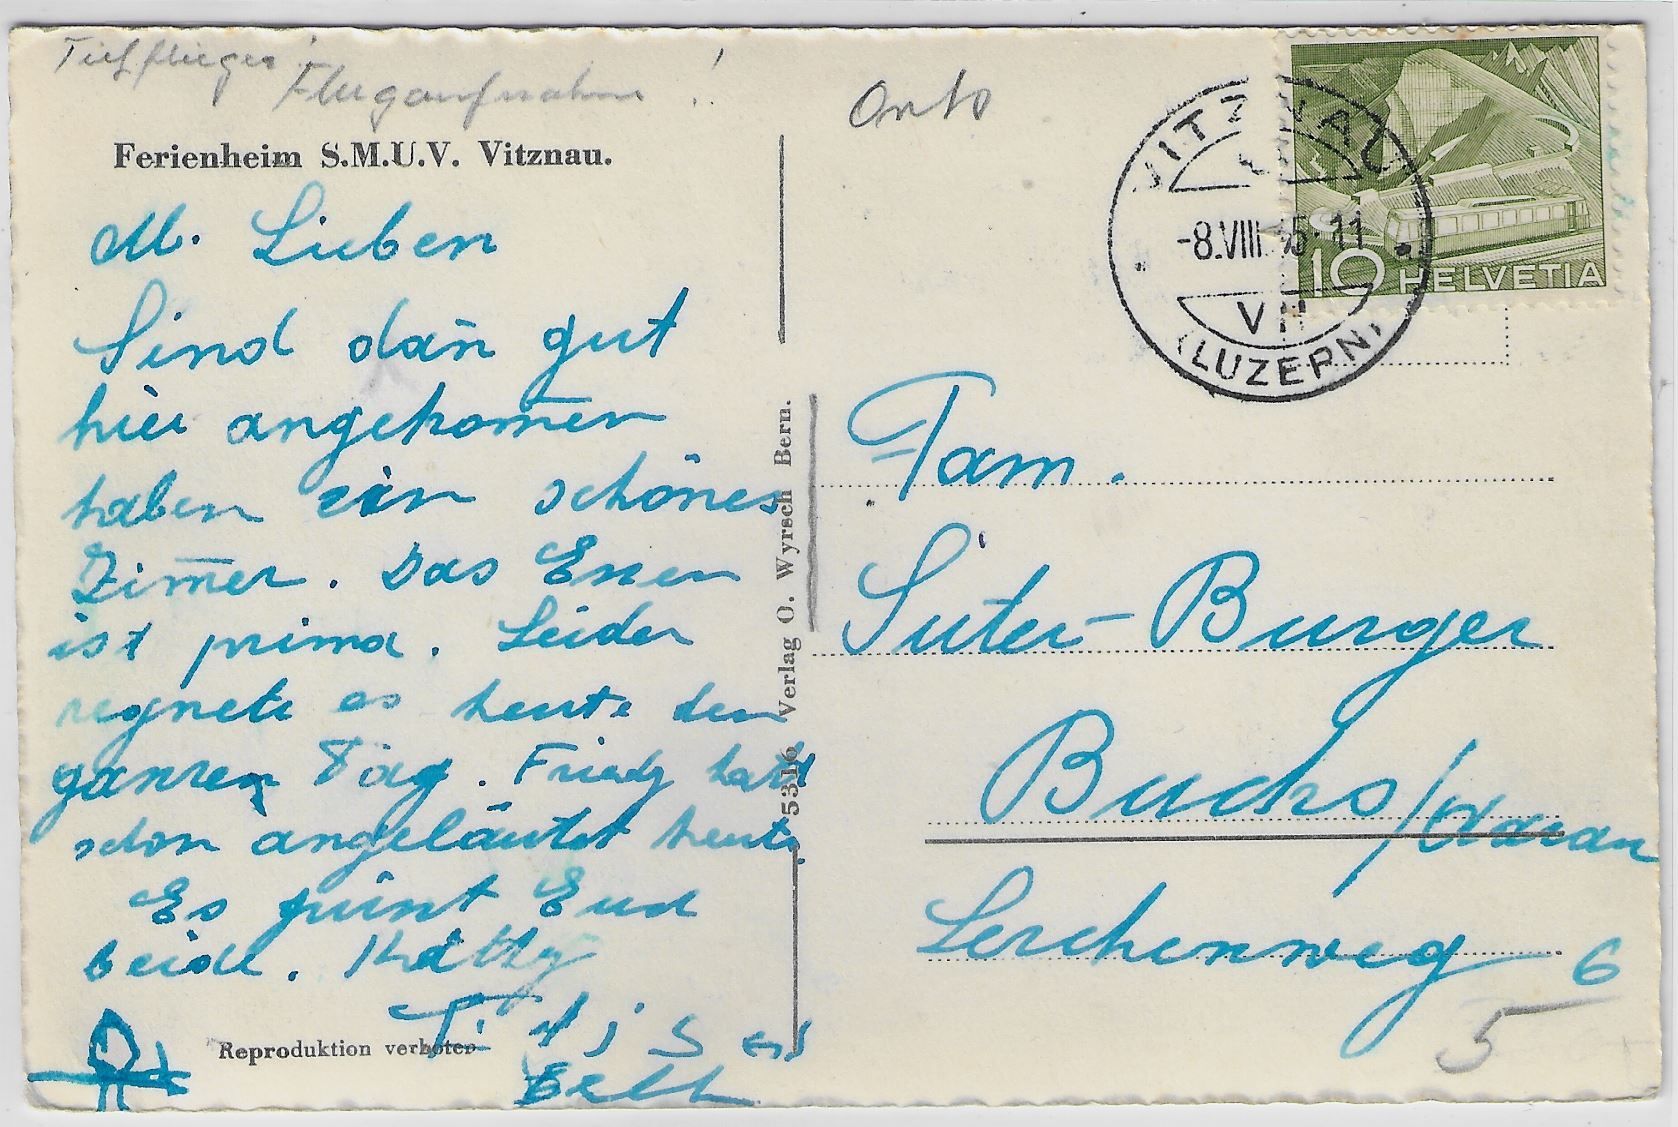 Tiefflieger!
Flugaufnahme!
Orts
Ferienheim S.M.U.V. Vitznau.
M. Lieben
Sind dan̄ gut
hier angekom̄en
haben ein schönes
Zim̄er. Das Essen
ist prima. Leider
regnete es heute den
ganzen Tag. Friedy hatt
schon angeläutet heute.
Es grüst Euch
beide. Käthy
Reproduktion verboten
53316 Verlag O. Wyrsch Bern.
VITZNAU
-8.VIII 55-11
(LUZERN)
10 HELVETIA
Fam.
Suter-Burger
Buchs/Aarau
Lerchenweg 6
5